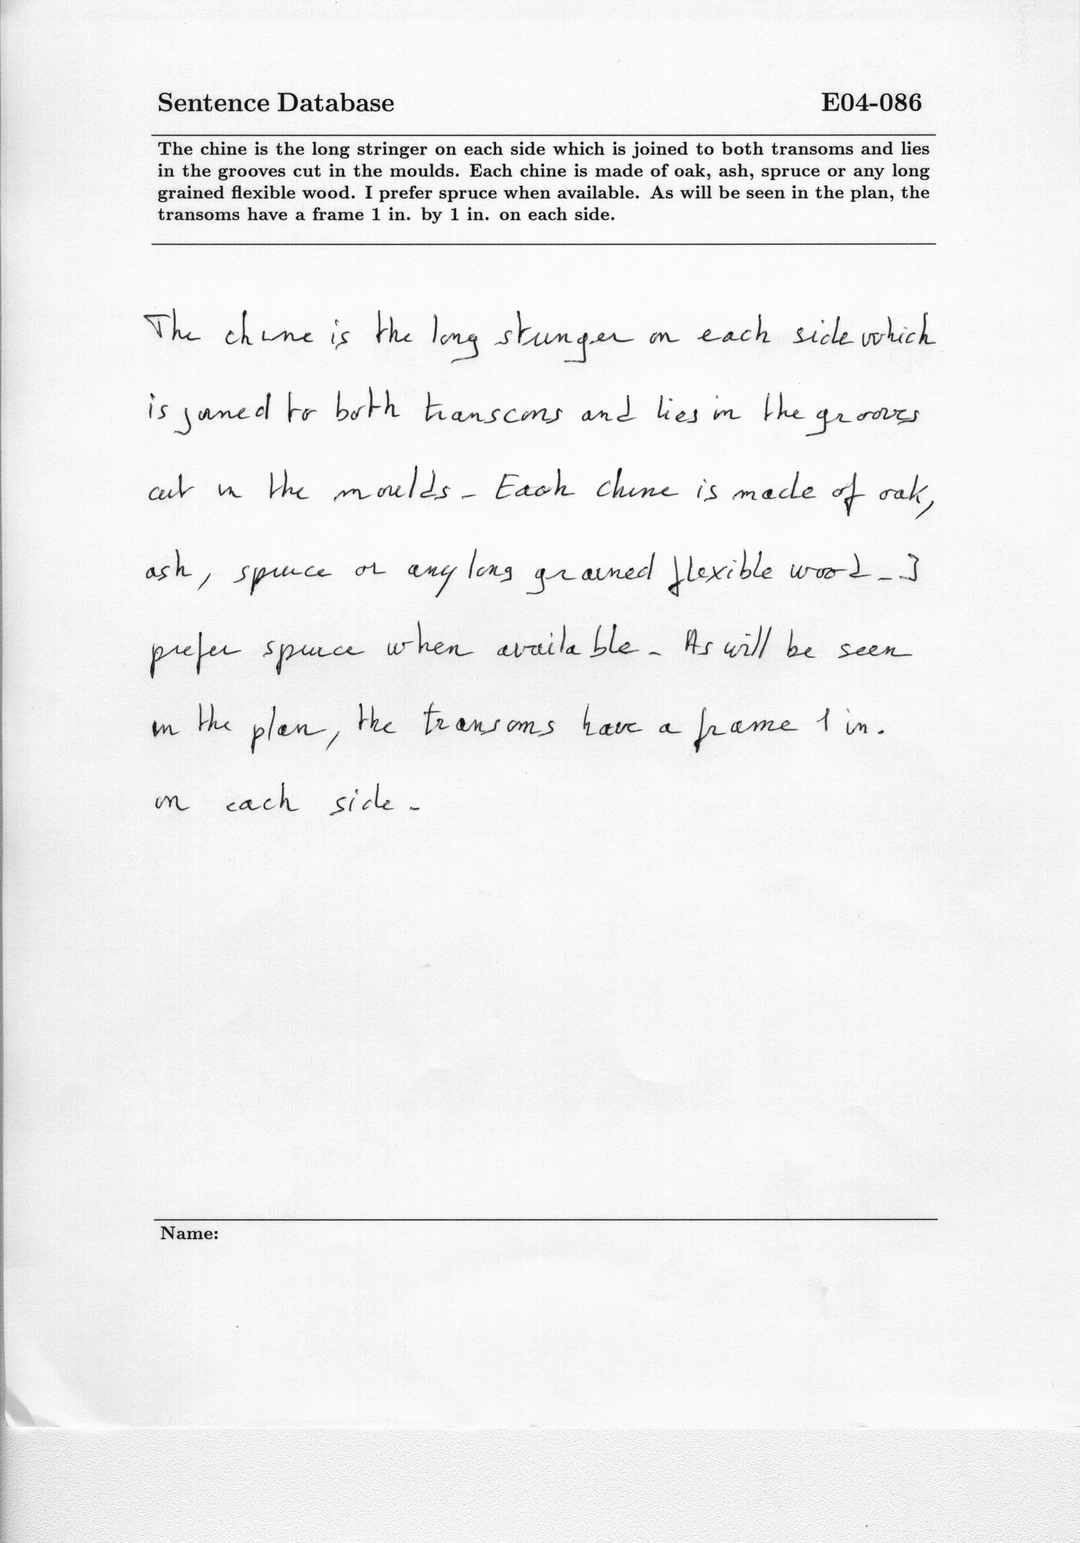 Sentence Database E04-086
The chine is the long stringer on each side which is joined to both transoms and lies
in the grooves cut in the moulds. Each chine is made of oak, ash, spruce or any long
grained flexible wood. I prefer spruce when available. As will be seen in the plan, the
transoms have a frame 1 in. by 1 in. on each side.
The chine is the long stringer on each side which
is joined to both transoms and lies in the grooves
cut in the moulds. Each chine is made of oak,
ash, spruce or any long grained flexible wood. I
prefer spruce when available. As will be seen
in the plan, the transoms have a frame 1 in.
on each side.
Name: